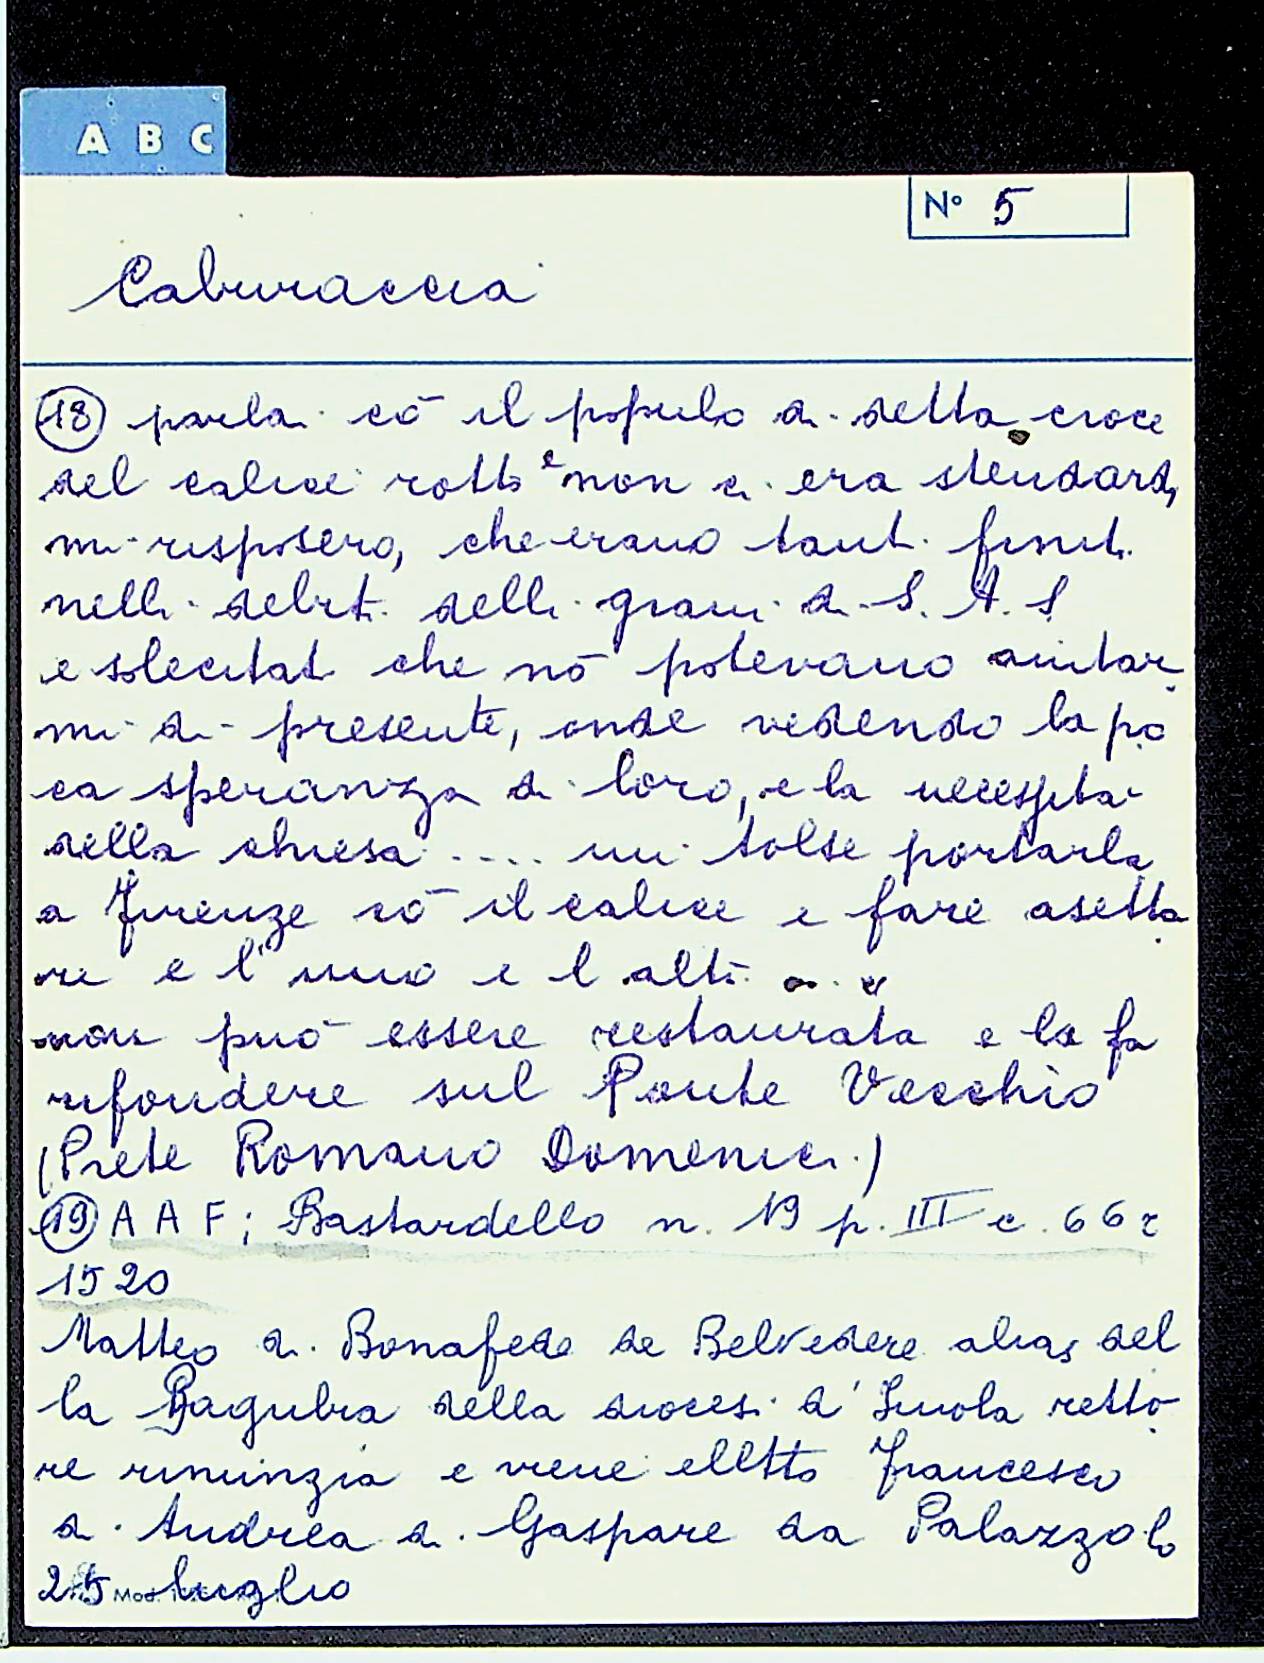 A B C
N° 5
Caburaccia
18 parla cō il popullo di detta croce
del calice rotto e non ci era stendardi,
mi risposero, che erano tanti finiti
nelli debiti delli grani di S. A. S
e solecitati che nō potevano aiutar
mi di presente, onde vedendo la po
ca speranza di loro, e la necessita
della chiesa .... mi tolse portarla
a Firenze cō il calice e fare asetta
re e l'uno e l altr.
non può essere restaurata e la fa
rifondere sul Ponte Vecchio
(Prete Romano Domenici)
19 A A F; Bastardello n. 19 p. III c. 66 r
1520
Matteo di Bonafede de Belvedere alias del
la Bagubia della diocesi d'Imola retto
re rinunzia e viene eletto Francesco
di Andrea di Gaspare da Palazzolo
25 luglio
Mod.